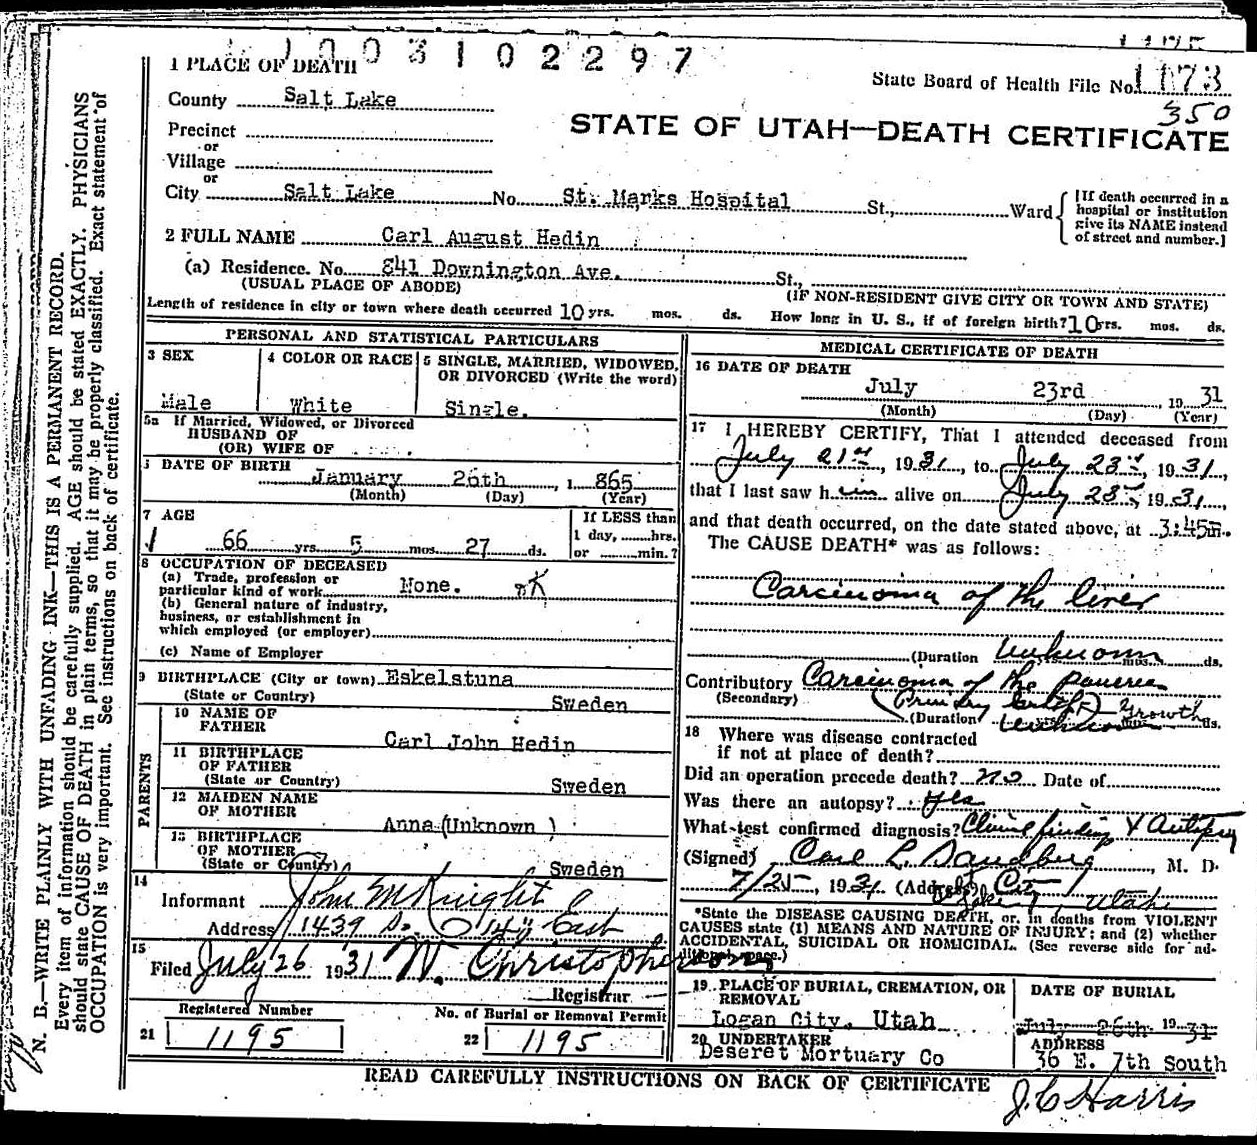 1003102297
1 PLACE OF DEATH
State Board of Health File No. 1173
350
County Salt Lake
STATE OF UTAH—DEATH CERTIFICATE
Precinct
or
Village
or
City Salt Lake No. St. Marks Hospital St., Ward
[If death occurred in a
hospital or institution
give its NAME instead
of street and number.]
2 FULL NAME Carl August Hedin
(a) Residence. No. 841 Downington Ave. St.,
(USUAL PLACE OF ABODE) (IF NON-RESIDENT GIVE CITY OR TOWN AND STATE)
Length of residence in city or town where death occurred 10 yrs. mos. ds. How long in U. S., if of foreign birth? 10 yrs. mos. ds.
PERSONAL AND STATISTICAL PARTICULARS
3 SEX
Male
4 COLOR OR RACE
White
5 SINGLE, MARRIED, WIDOWED,
OR DIVORCED (Write the word)
Single.
5a If Married, Widowed, or Divorced
HUSBAND OF
(OR) WIFE OF
DATE OF BIRTH
January 26th, 1865
(Month) (Day) (Year)
7 AGE
66 yrs. 5 mos. 27 ds.
If LESS than
1 day, hrs.
or min.?
8 OCCUPATION OF DECEASED
(a) Trade, profession or
particular kind of work None.
(b) General nature of industry,
business, or establishment in
which employed (or employer)
(c) Name of Employer
9 BIRTHPLACE (City or town) Eskelstuna
(State or Country) Sweden
PARENTS
10 NAME OF
FATHER Carl John Hedin
11 BIRTHPLACE
OF FATHER
(State or Country) Sweden
12 MAIDEN NAME
OF MOTHER Anna (Unknown )
13 BIRTHPLACE
OF MOTHER
(State or Country) Sweden
14
Informant John McKnight
Address 1439 So. East
15
Filed July 26 1931 W. Christopherson
Registrar
Registered Number
21 1195
No. of Burial or Removal Permit
22 1195
MEDICAL CERTIFICATE OF DEATH
16 DATE OF DEATH
July 23rd, 1931
(Month) (Day) (Year)
17 I HEREBY CERTIFY, That I attended deceased from
July 21st, 1931, to July 23rd, 1931,
that I last saw him alive on July 23rd, 1931,
and that death occurred, on the date stated above, at 3:45m.
The CAUSE DEATH* was as follows:
Carcinoma of the liver
(Duration Unknown mos. ds.
Contributory Carcinoma of the pancreas
(Secondary) (Primary growth)
(Duration Unknown ds.
18 Where was disease contracted
if not at place of death?
Did an operation precede death? no Date of
Was there an autopsy? Yes
What test confirmed diagnosis? Clinical finding & Autopsy
(Signed) Carl L. Sandberg, M. D.
7/25, 1931 (Address) City
Utah
*State the DISEASE CAUSING DEATH, or, in deaths from VIOLENT
CAUSES state (1) MEANS AND NATURE OF INJURY; and (2) whether
ACCIDENTAL, SUICIDAL OR HOMICIDAL. (See reverse side for ad-
ditional space.)
19 PLACE OF BURIAL, CREMATION, OR
REMOVAL
Logan City, Utah
DATE OF BURIAL
July 26th 1931
20 UNDERTAKER
Deseret Mortuary Co
ADDRESS
36 E. 7th South
READ CAREFULLY INSTRUCTIONS ON BACK OF CERTIFICATE
J. C. Harris
N. B.—WRITE PLAINLY WITH UNFADING INK—THIS IS A PERMANENT RECORD.
Every item of information should be carefully supplied. AGE should be stated EXACTLY. PHYSICIANS
should state CAUSE OF DEATH in plain terms, so that it may be properly classified. Exact statement of
OCCUPATION is very important. See instructions on back of certificate.